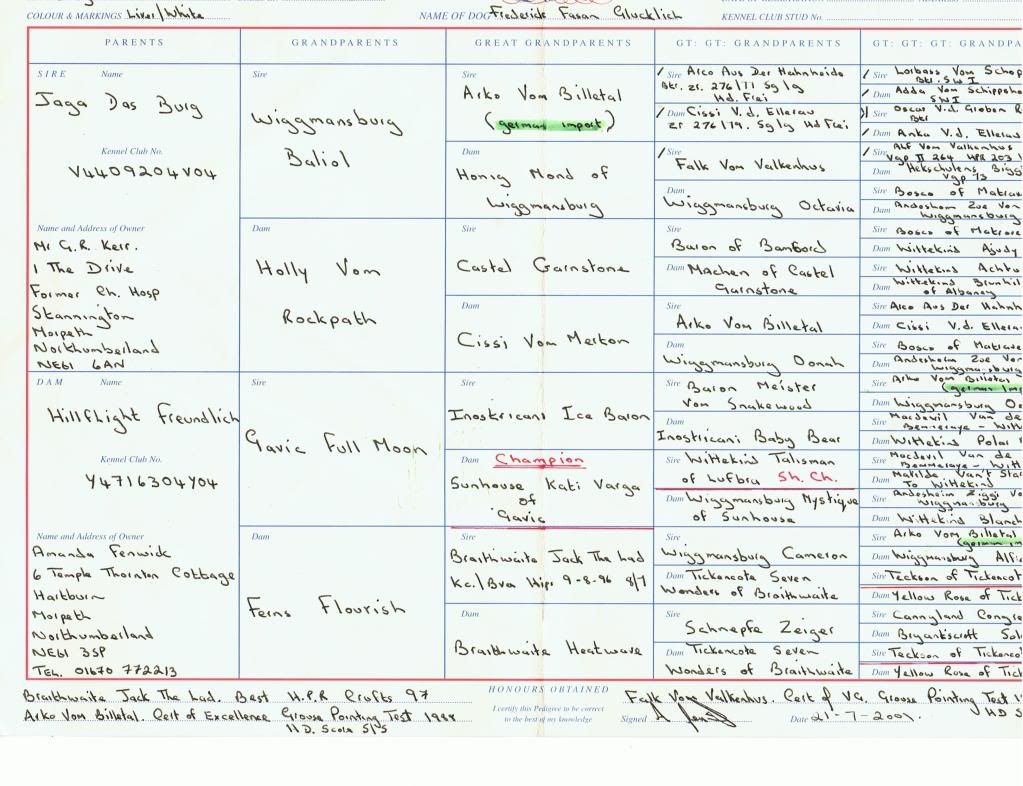 COLOUR & MARKINGS Liver/White
NAME OF DOG Frederick Fasan Glucklich
KENNEL CLUB STUD No.
PARENTS
GRANDPARENTS
GREAT GRANDPARENTS
GT: GT: GRANDPARENTS
GT: GT: GT: GRANDPA
SIRE Name
Jaga Das Burg
Kennel Club No.
V4409204V04
Name and Address of Owner
Mr G.R. Kerr.
1 The Drive
Former Ch. Hosp
Stannington
Morpeth
Northumberland
NE61 6AN
DAM Name
Hillflight Freundlich
Kennel Club No.
Y4716304Y04
Name and Address of Owner
Amanda Fenwick
6 Temple Thornton Cottage
Hartburn
Morpeth
Northumberland
NE61 3SP
TEL. 01670 772213
Sire
Wiggmansburg
Baliol
Dam
Holly Vom
Rockpath
Sire
Gavic Full Moon
Dam
Ferns Flourish
Sire
Arko Vom Billetal
(german import)
Dam
Honig Mond of
Wiggmansburg
Sire
Castel Garnstone
Dam
Cissi Vom Merton
Sire
Inostricani Ice Baron
Dam Champion
Sunhouse Kati Varga
of
Gavic
Sire
Braithwaite Jack The Lad
Kc./Bva Hips 9-8-96 8/7
Dam
Braithwaite Heatwave
Sire Arco Aus Der Hahnheide
Btr. zr. 276/71 Sg/g
Hd. Frei
Dam Cissi V.d. Ellerau
zr 276/79. Sg/g Hd Frei
Sire
Falk Vom Valkenhus
Dam
Wiggmansburg Octavia
Sire
Baron of Bamford
Dam Machen of Castel
Garnstone
Sire
Arko Vom Billetal
Dam
Wiggmansburg Oonah
Sire Baron Meister
Von Snakewood
Dam
Inostricani Baby Bear
Sire Wittekind Talisman
of Lufbra Sh. Ch.
Dam Wiggmansburg Mystique
of Sunhouse
Sire
Wiggmansburg Cameron
Dam Tickencote Seven
Wonders of Braithwaite
Sire
Schnepfe Zeiger
Dam Tickencote Seven
Wonders of Braithwaite
Sire Lorbass Vom Schop
Btr. SW I
Dam Adda Vom Schippeho
SW I
Sire Oscar V.d. Groben R
Btr
Dam Anka V.d. Ellerau
Sire Alf Vom Valkenhus
Vgp II 264 HPR 203
Dam Hekschutens Biggi
Vgp 73
Sire Bosco of Matrav
Dam Andesheim Zoe Von
Wiggmansburg
Sire Bosco of Matrave
Dam Wittekind Ajudy
Sire Wittekind Achtu
Dam Wittekind Brunhil
of Albaney
Sire Arco Aus Der Hahnh
Dam Cissi V.d. Ellera
Sire Bosco of Matrave
Dam Andesheim Zoe Von
Wiggmansburg
Sire Arko Vom Billetal
(german imp
Dam Wiggmansburg Oc
Sire Macdevil Van de
Bemmeraye - Witt
Dam Wittekind Polar
Sire Macdevil Van de
Bemmeraye - Witt
Dam Matilde Van't Sta
To Wittekind
Sire Andesheim Ziggi V
Wiggmansburg
Dam Wittekind Blanch
Sire Arko Vom Billetal
(german im
Dam Wiggmansburg Alfi
Sire Teckson of Tickencot
Dam Yellow Rose of Tick
Sire Cannyland Congre
Dam Bryantscroft Sol
Sire Teckson of Tickencot
Dam Yellow Rose of Tick
Braithwaite Jack The Lad. Best H.P.R Crufts 97
Arko Vom Billetal. Cert of Excellence Grouse Pointing Test 1988
H.D. Score 5/5
HONOURS OBTAINED
I certify this Pedigree to be correct
to the best of my knowledge
Falk Vom Valkenhus. Cert of VG. Grouse Pointing Test 1
HD S
Signed
Date 21-7-2001.